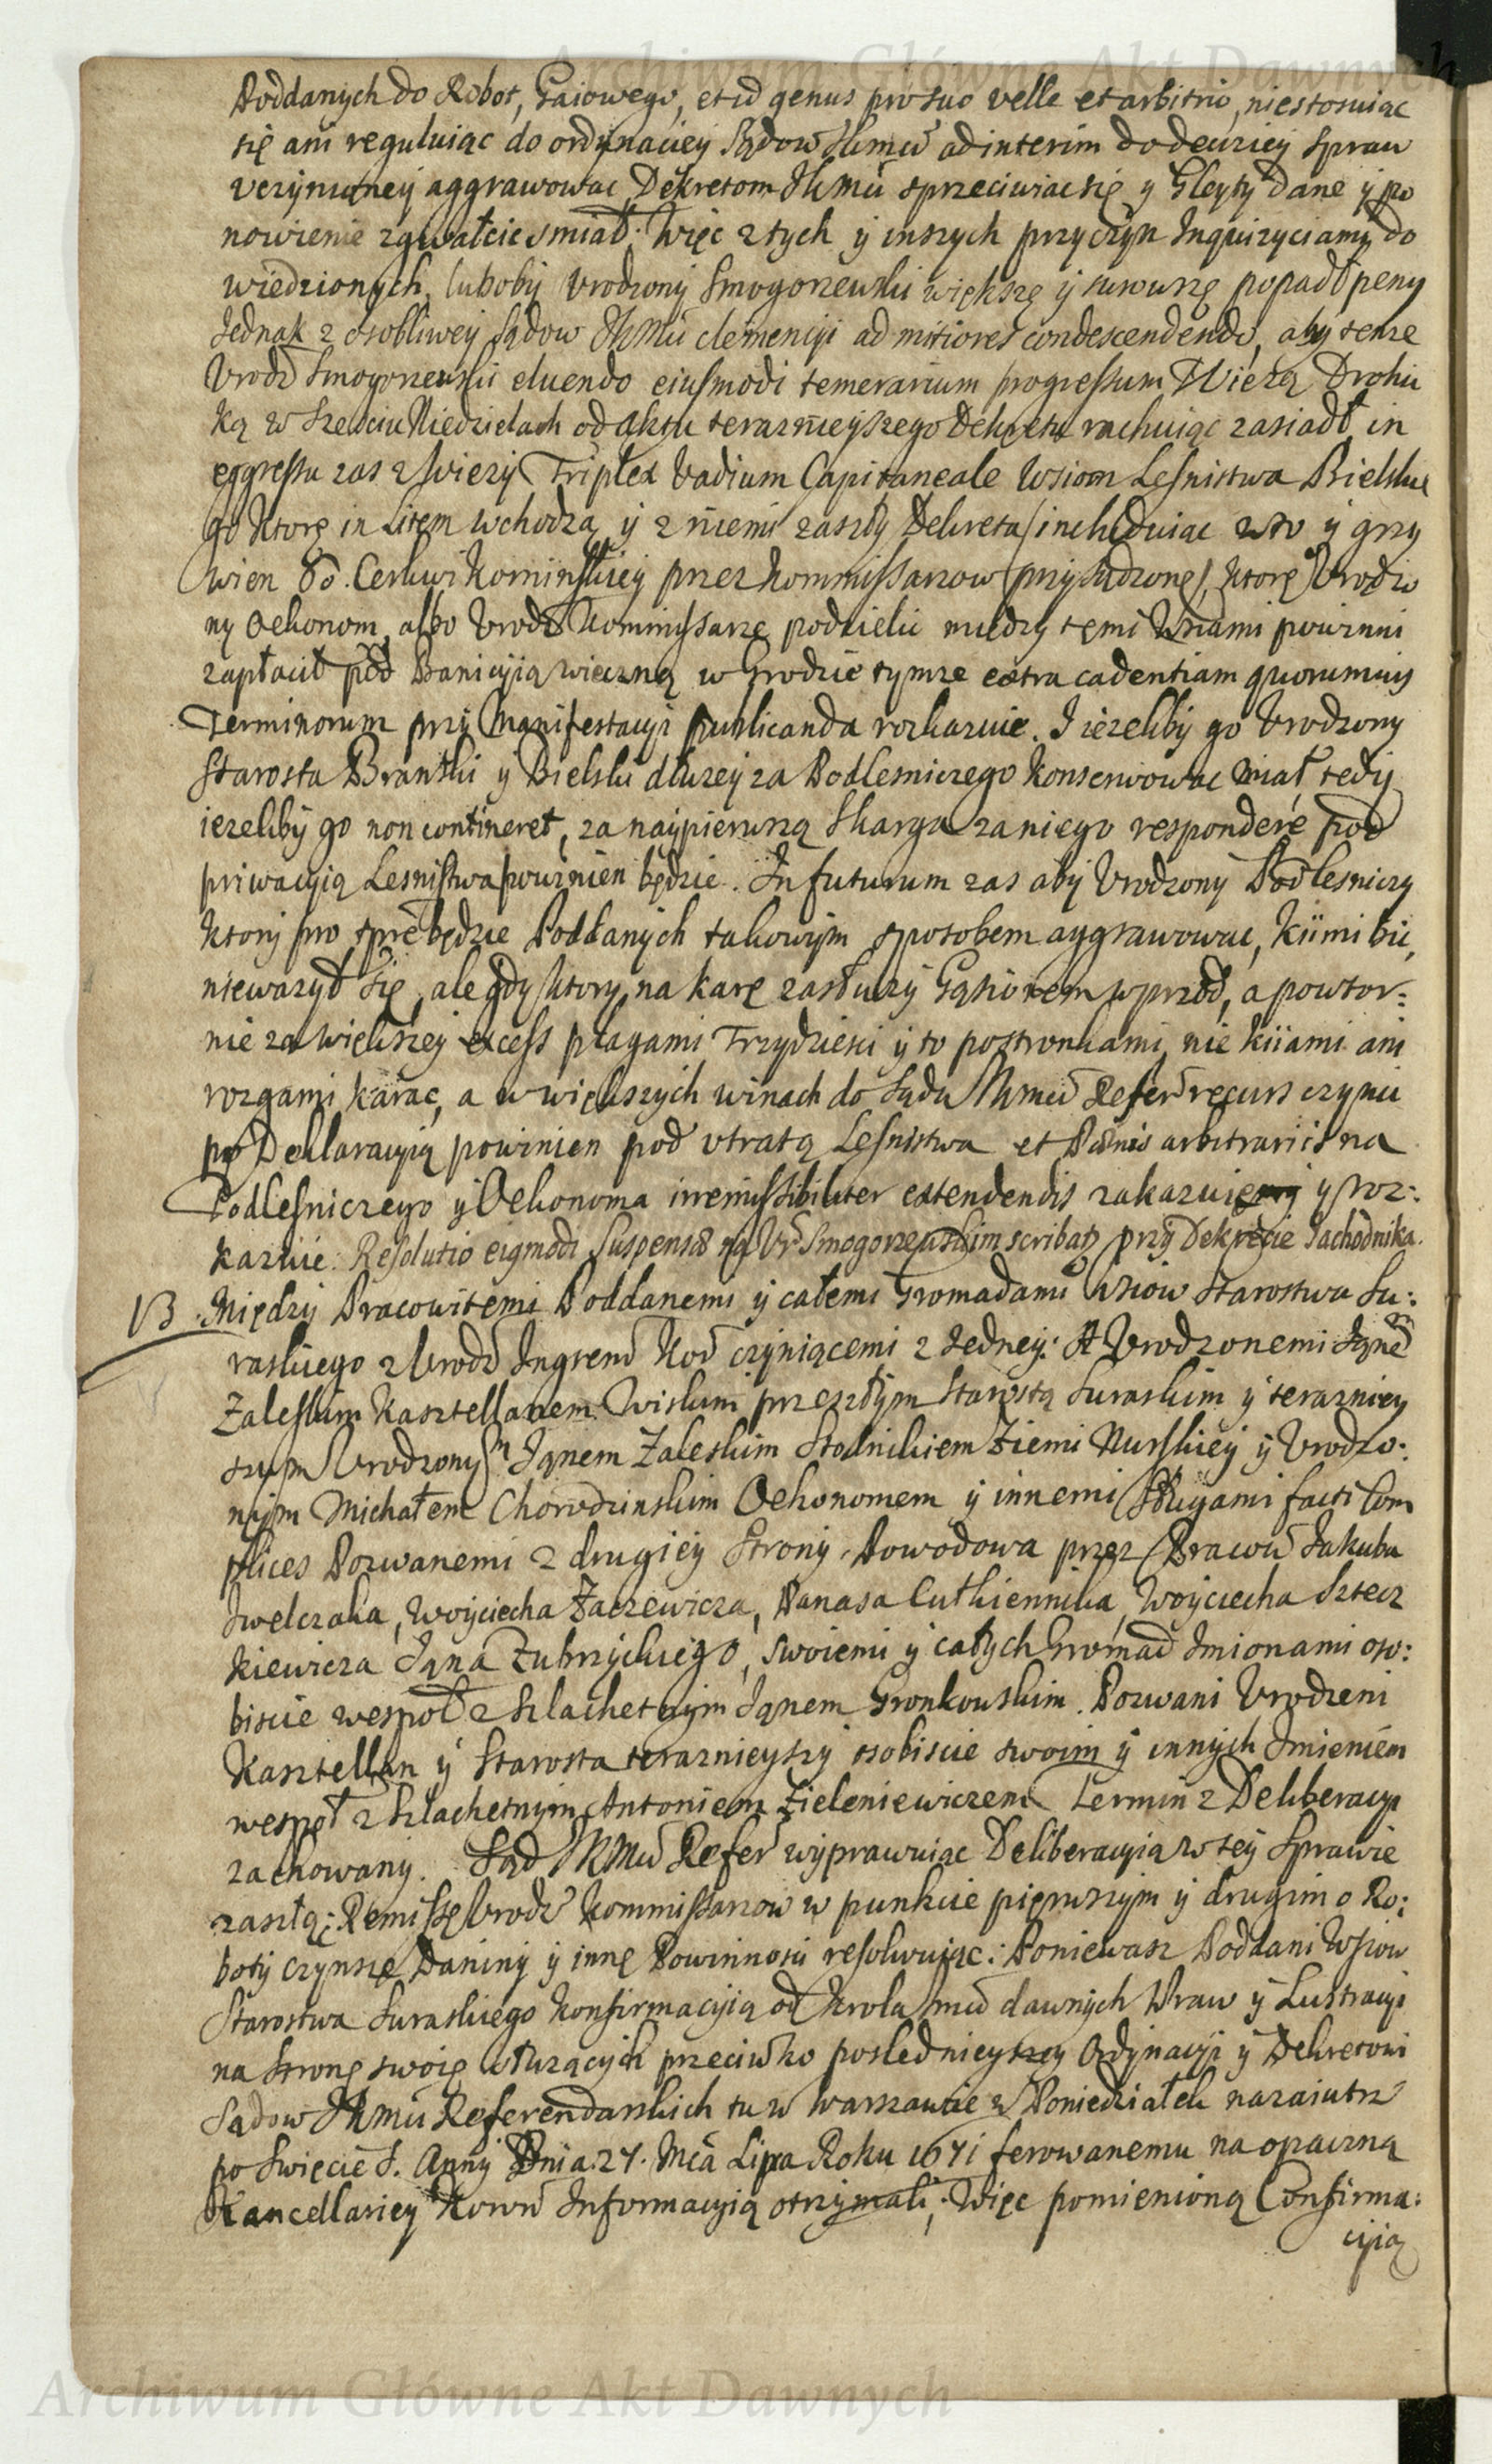 Poddanych do Robot, Gaiowego, et id genus pro suo velle et arbitrio, niestosuiąc
się ani reguluiąc do ordynaciey Sądow JKmci ad interim do deciziey spraw
vczynioney aggrawowac Dekretom JKmci sprzeciwiac się y Gleyty dane y po
nowienie zgwałcic smiał. Więc z tych y inszych przyczyn Inquizyciamy do
wiedzionych, luboby Vrodzony Smogorzewski większę y surowszę popadł peny
Jednak z osobliwey sądow JKMci clemencyi ad mitiores condescendendo, aby tenze
Vrodz Smogorzewski eluendo eiusmodi temerarium progressum Wiezą Drohic
ką w Szesciu Niedzielach od aktu teraznieyszego Dekretu rachuiąc zasiadł, in
eggressu zas z Wiezy Triplex Vadium Capitaneale Wsiom Lesnistwa Bielskie
go ktore in Litem wchodzą y z niemi zaszły Dekreta (includuiac w to y grzy
wien 80. Cerkwi Kominskiey przez Kommissarzow przysądzone), ktore Vrodzo
ny Oekonom, albo Vrodz Kommissarze podzielic między temi Wsiami powinni
zapłacił pod Banicyią wieczną w Grodzie tymze extra cadentiam quorumuis
Terminorum przy Manifestacyi publicanda rozkazuie. I iezeliby go Vrodzony
Starosta Branski y Bielski dłuzey za Podlesniczego konserwowac miał, tedy
iezeliby go non contineret, za naypierwszą skargą za niego respondere pod
priwacyią Lesnistwa powinien będzie. In futurum zas aby Vrodzony Podlesniczy
ktory pro tpre będzie Poddanych takowym sposobem aggrawowac, kiimi bic,
niewazył się, ale gdy ktory na karę zasłuzy Gąsiorem wprzod, a powtor:
nie za większey excess plagami Trzydziesci y to postronkami, nie kiiami ani
rozgami karac, a w większych winach do Sądu JKmci Refer recurs czynic
po Deklaracyią powinien pod vtratą Lesnistwa et Poenis arbitrariis na
Podlesniczego y Oekonoma irremissibiliter extendendis zakazuie y roz:
kazuie. Resolutio eiqmodi Suspensae na Vr Smogorzewskim scribatr przy Dekrecie Zachodnika.
13. Między Pracowitemi Poddanemi y całemi Gromadami Wsiow Starostwa Su:
raskiego z Vrodz Instgem Kor czyniącemi z Jedney: A Vrodzonemi Janem
Zaleskim Kasztellanem Wiskim przeszłym Starostą Suraskim y terazniey
szym Vrodzonym Janem Zaleskim Stolnikiem Ziemi Nurskiey y Vrodzo:
nym Michałem Chorodzinskim Oekonomem y innemi Sługami facti Com
plices Pozwanemi z drugiey Strony. Powodowa przez Pracow Jakuba
Jwelczaka, Woyciecha Zaczewicza, Panasa Cutkiennika, Woyciecha Stecz
kiewicza Jana Zubrzyckiego, swoiemi y całych Gromad Jmionami oso:
biscie wespoł z Szlachetnym Janem Gronkowskim. Pozwani Vrodzeni
Kasztellan y Starosta teraznieyszy osobiscie swoim y innych Jmieniem
wespoł z Szlachetnym Antoniem Zieleniewiczem Termin z Deliberacyi
zachowany. Sąd JKMci Refer wyprawuiąc Deliberacyią w tey Sprawie
zaszłą: Remissę Vrodz Kommissarzow w punkcie pierwszym y drugim o Ro:
boty czynsze Daniny y inne Powinnosci resolwuiąc: Poniewasz Poddani Wsiow
Starostwa Suraskiego Konfirmacyią od Krola Jmci dawnych Praw y Lustracyi
na Stronę swoię słuzących przeciwko poslednieyszey Ordynacyi y Dekretowi
Sądow JKmci Referendarskich tu w Warszawie w Poniedziałek nazaiutrz
po Swięcie S. Anny Dnia 27. Mca Lipca Roku 1671 ferowanemu na opaczną
Kancellariey Koron Informacyią otrzymali, Więc pomienioną Confirma:
cyią